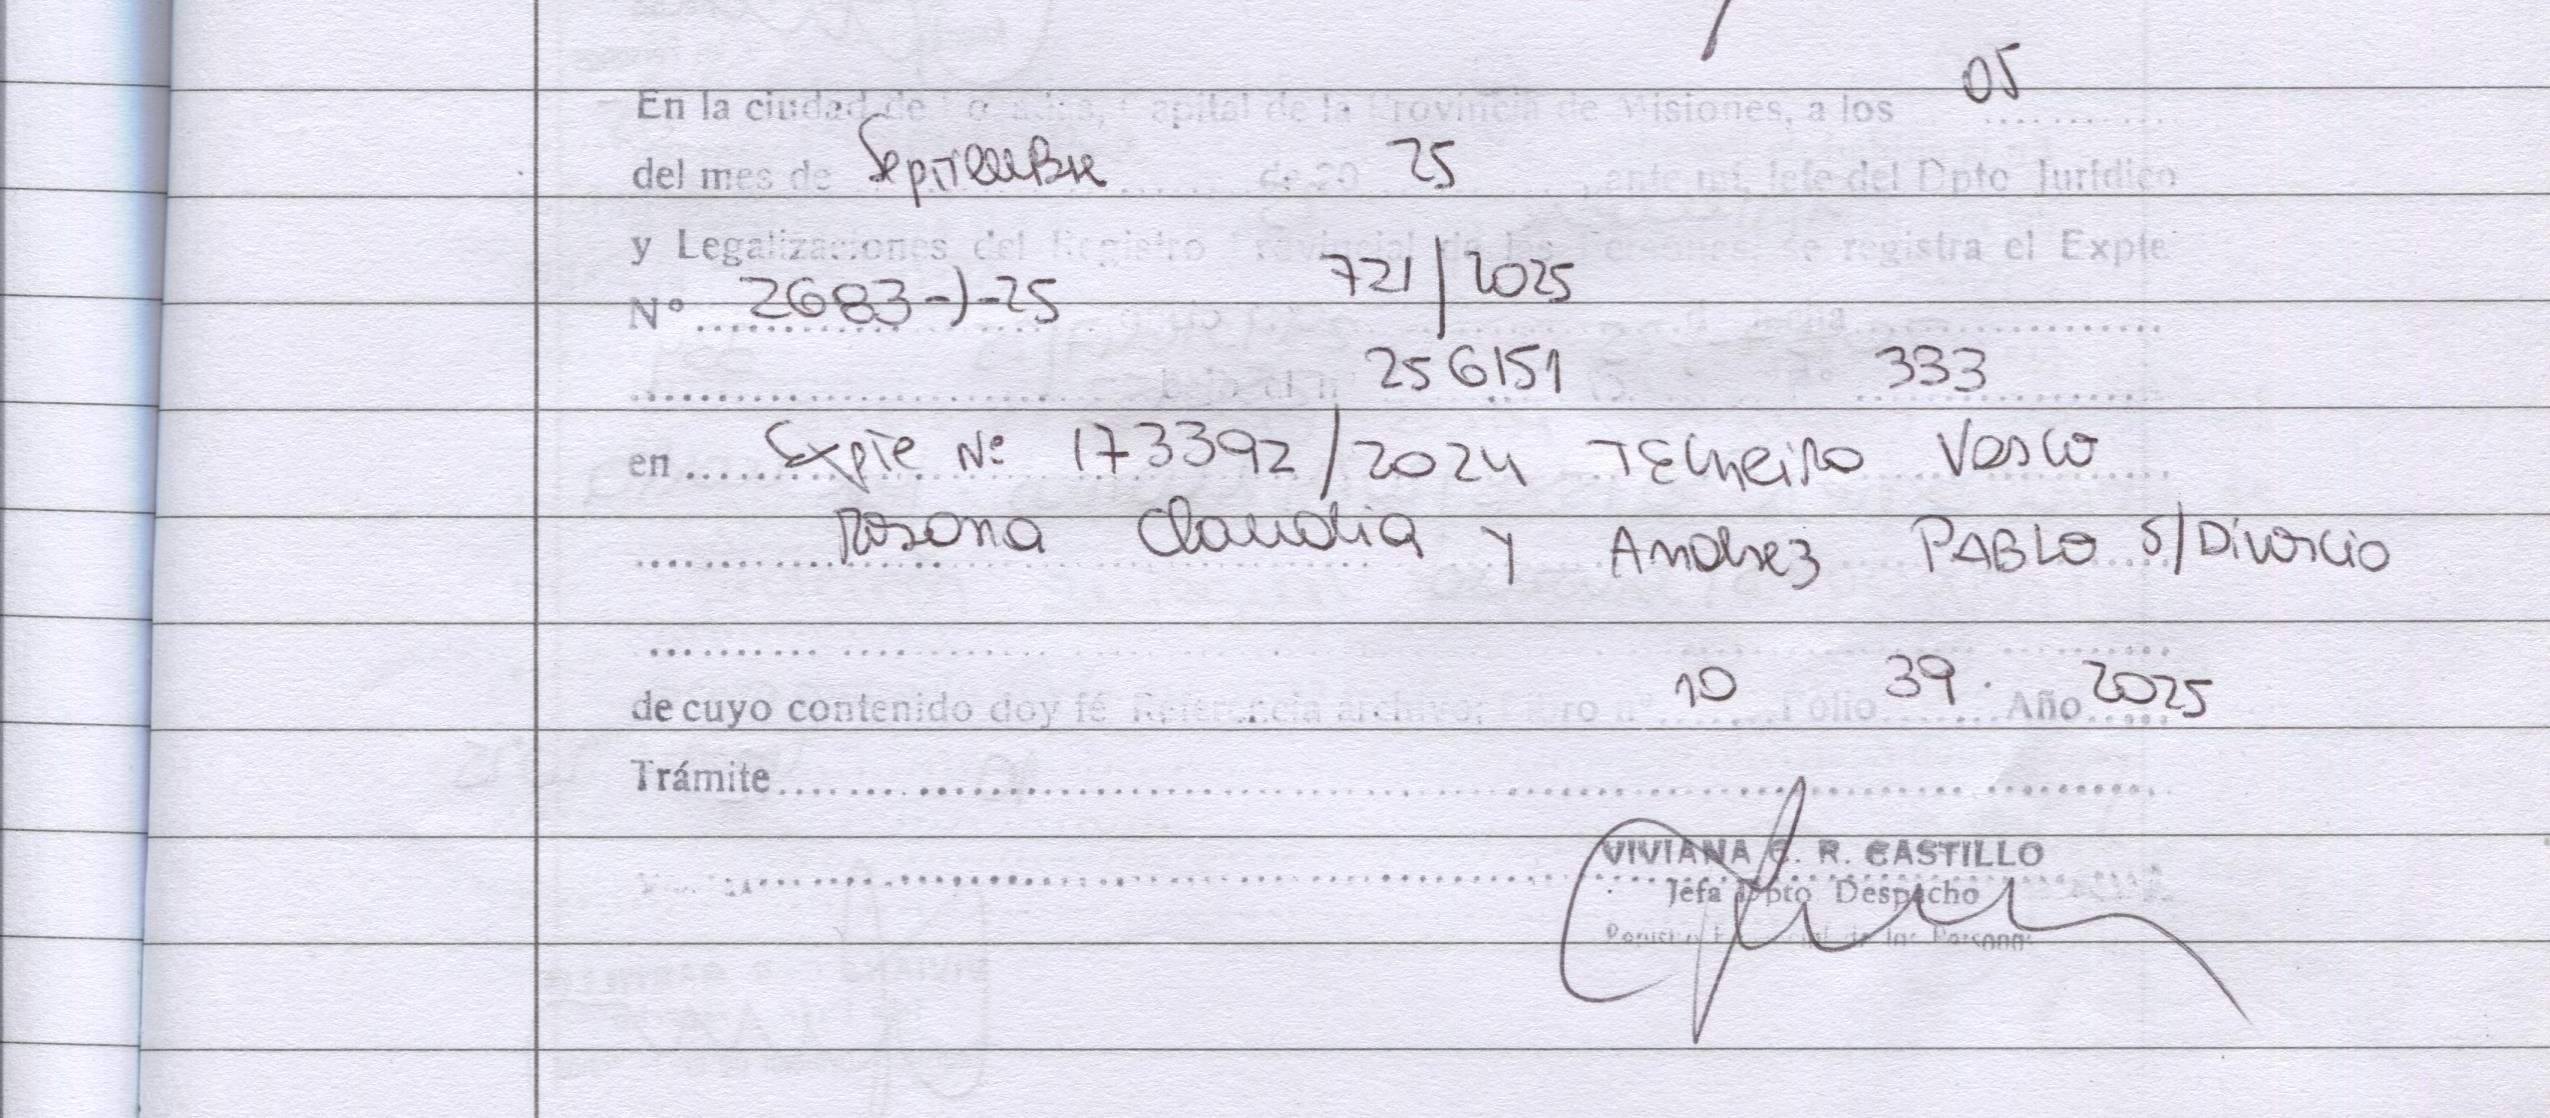 05
En la ciudad de Posadas, Capital de la Provincia de Misiones, a los ..........
del mes de Septiembre de 20 25 , ante mi, Jefe del Dpto Jurídico
y Legalizaciones del Registro Provincial de las Personas, se registra el Expte
Nº 2683-J-25 oficio 721/2025 de fecha
bajo el nº 256151 Fº 333
en Expte Nº 173392/2024 TECHEIRO VASCO
Rosana Claudia y Andrez PABLO S/Divorcio
de cuyo contenido doy fé Referencia archivo: Libro nº 10 Folio 39. Año 2025
Trámite
VIVIANA G. R. CASTILLO
Jefa Dpto Despacho
Registro Provincial de las Personas